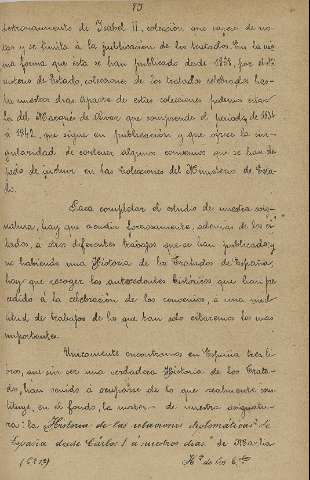 13
destronamiento de Isabel II, colección que carece de no-
tas y se limita á la publicación de los tratados. En la mis-
ma forma que esta se han publicado desde 1878, por el Mi-
nisterio de Estado, colecciones de los tratados celebrados has-
ta nuestros dias. Aparte de estas colecciones podemos citar
la del Marques de Olivar que comprende el periodo de
á 1842, que sigue en publicación y que ofrece la sin-
gularidad de contener algunos convenios que se han de-
jado de incluir en las colecciones del Ministerio de Esta-
do.
Para completar el estudio de nuestra asig-
natura, hay que acudir forzosamente, ademas de los ci-
tados, á otros diferentes trabajos que se han publicado, y
no habiendo una Historia de los Tratados de España,
hay que recoger los antecedentes históricos que han pre-
cedido á la celebración de los convenios, á una mul-
titud de trabajos de los que tan solo citaremos los mas
importantes.
Unicamente encontramos en España tres li-
bros, que sin ser una verdadera Historia de los Trata-
dos, han venido á ocuparse de lo que realmente cons-
tituye, en el fondo, la materia de nuestra asignatu-
ra: la "Historia de las relaciones diplomaticas de
España desde Cárlos I á nuestros dias" de
Hª de los